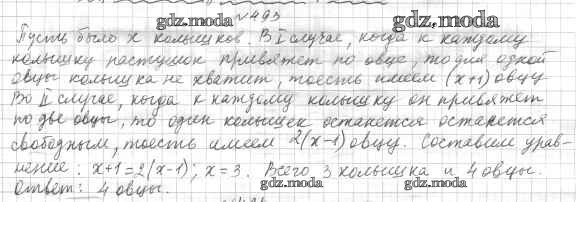 № 493
gdz.moda
gdz.moda
Пусть было x колышков. В I случае, когда к каждому
колышку пастушок привяжет по овце, то для одной
овцы колышка не хватит, тоесть имеем (x+1) овцу
Во II случае, когда к каждому колышку он привяжет
по две овцы, то один колышек останется останется
свободным, тоесть имеем 2(x-1) овцу. Составим урав-
нение: x+1=2(x-1); x=3. Всего 3 колышка и 4 овцы.
Ответ: 4 овцы.
gdz.moda
gdz.moda